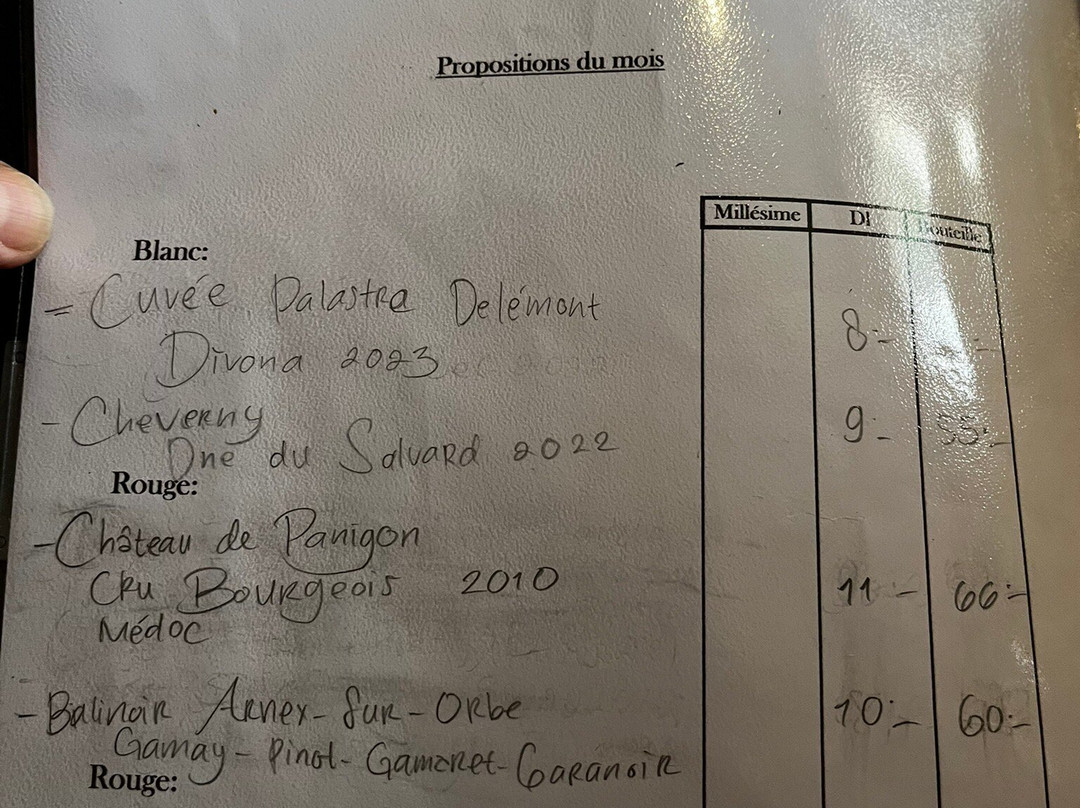 Propositions du mois
Millésime Dl Bouteille
Blanc:
= Cuvée Palastra Delémont 8.-
Divona 2023
- Cheverny 9.- 55.-
Dne du Salvard 2022
Rouge:
- Château de Panigon
Cru Bourgeois 2010 11.- 66.-
Médoc
- Balinoir Arnex-Sur-Orbe 10.- 60.-
Gamay-Pinot-Gamaret-Garanoir
Rouge: